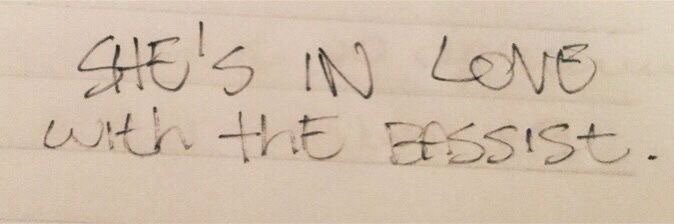 SHE'S IN LOVE
with thE BASSISt.